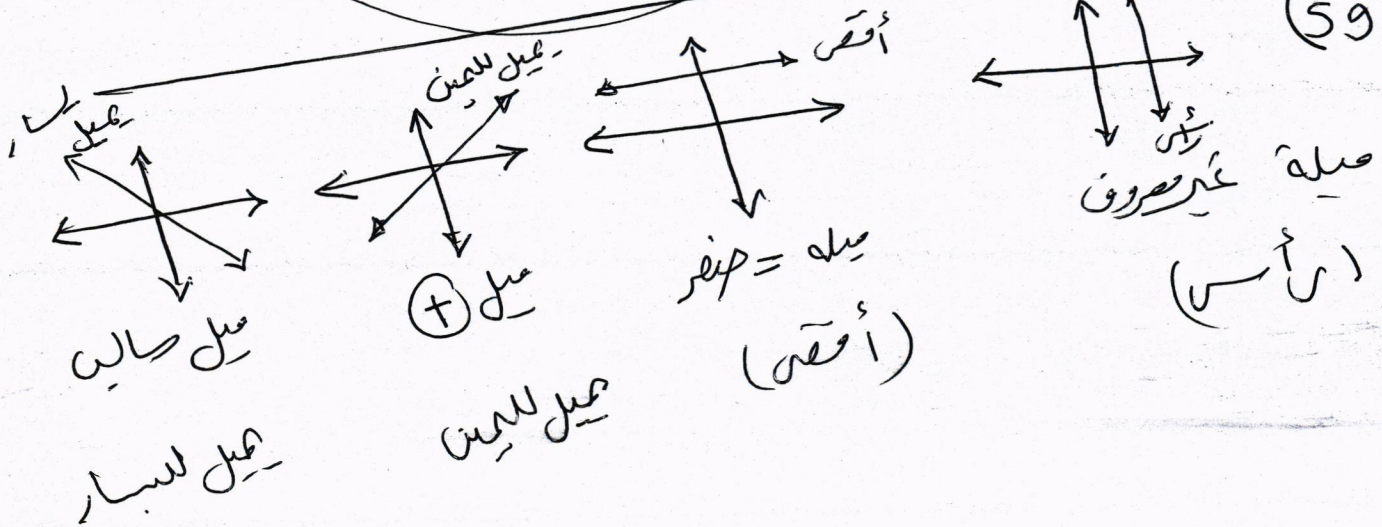 59)
رأسي
ميلة غير معروف
(رأسي)
أفقي
ميله = صفر
(أفقي)
يميل لليمين
ميل +
يميل لليمين
يميل لليسار
ميل سالب
يميل لليسار